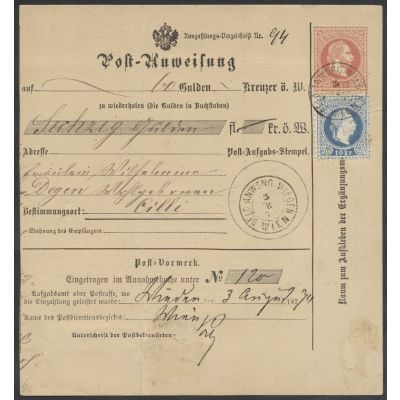 Auszahlungs-Verzeichniß Nr. 94
Post-Anweisung
auf 60 Gulden Kreuzer ö. W.
zu wiederholen (die Gulden in Buchstaben)
Sechzig Gulden fl. kr. ö. W.
Adresse Post-Aufgabs-Stempel.
Fräulein Wilhelmine
Degen
Bestimmungsort: Cilli
Wohnung des Empfängers:
GELD-ANWSNG WIEDEN
3
8
WIEN
10 KR
Raum zum Aufkleben der Ergänzungsmarken
Post-Vormerk.
Eingetragen im Annahmsbuche unter No 120
Aufgabsamt oder Postrasse, wo
die Einzahlung geleistet wurde: Wieden 3 August 1874
Name des Postdirectionsbezirkes: Wien
Unterschrift der Postbediensteten: